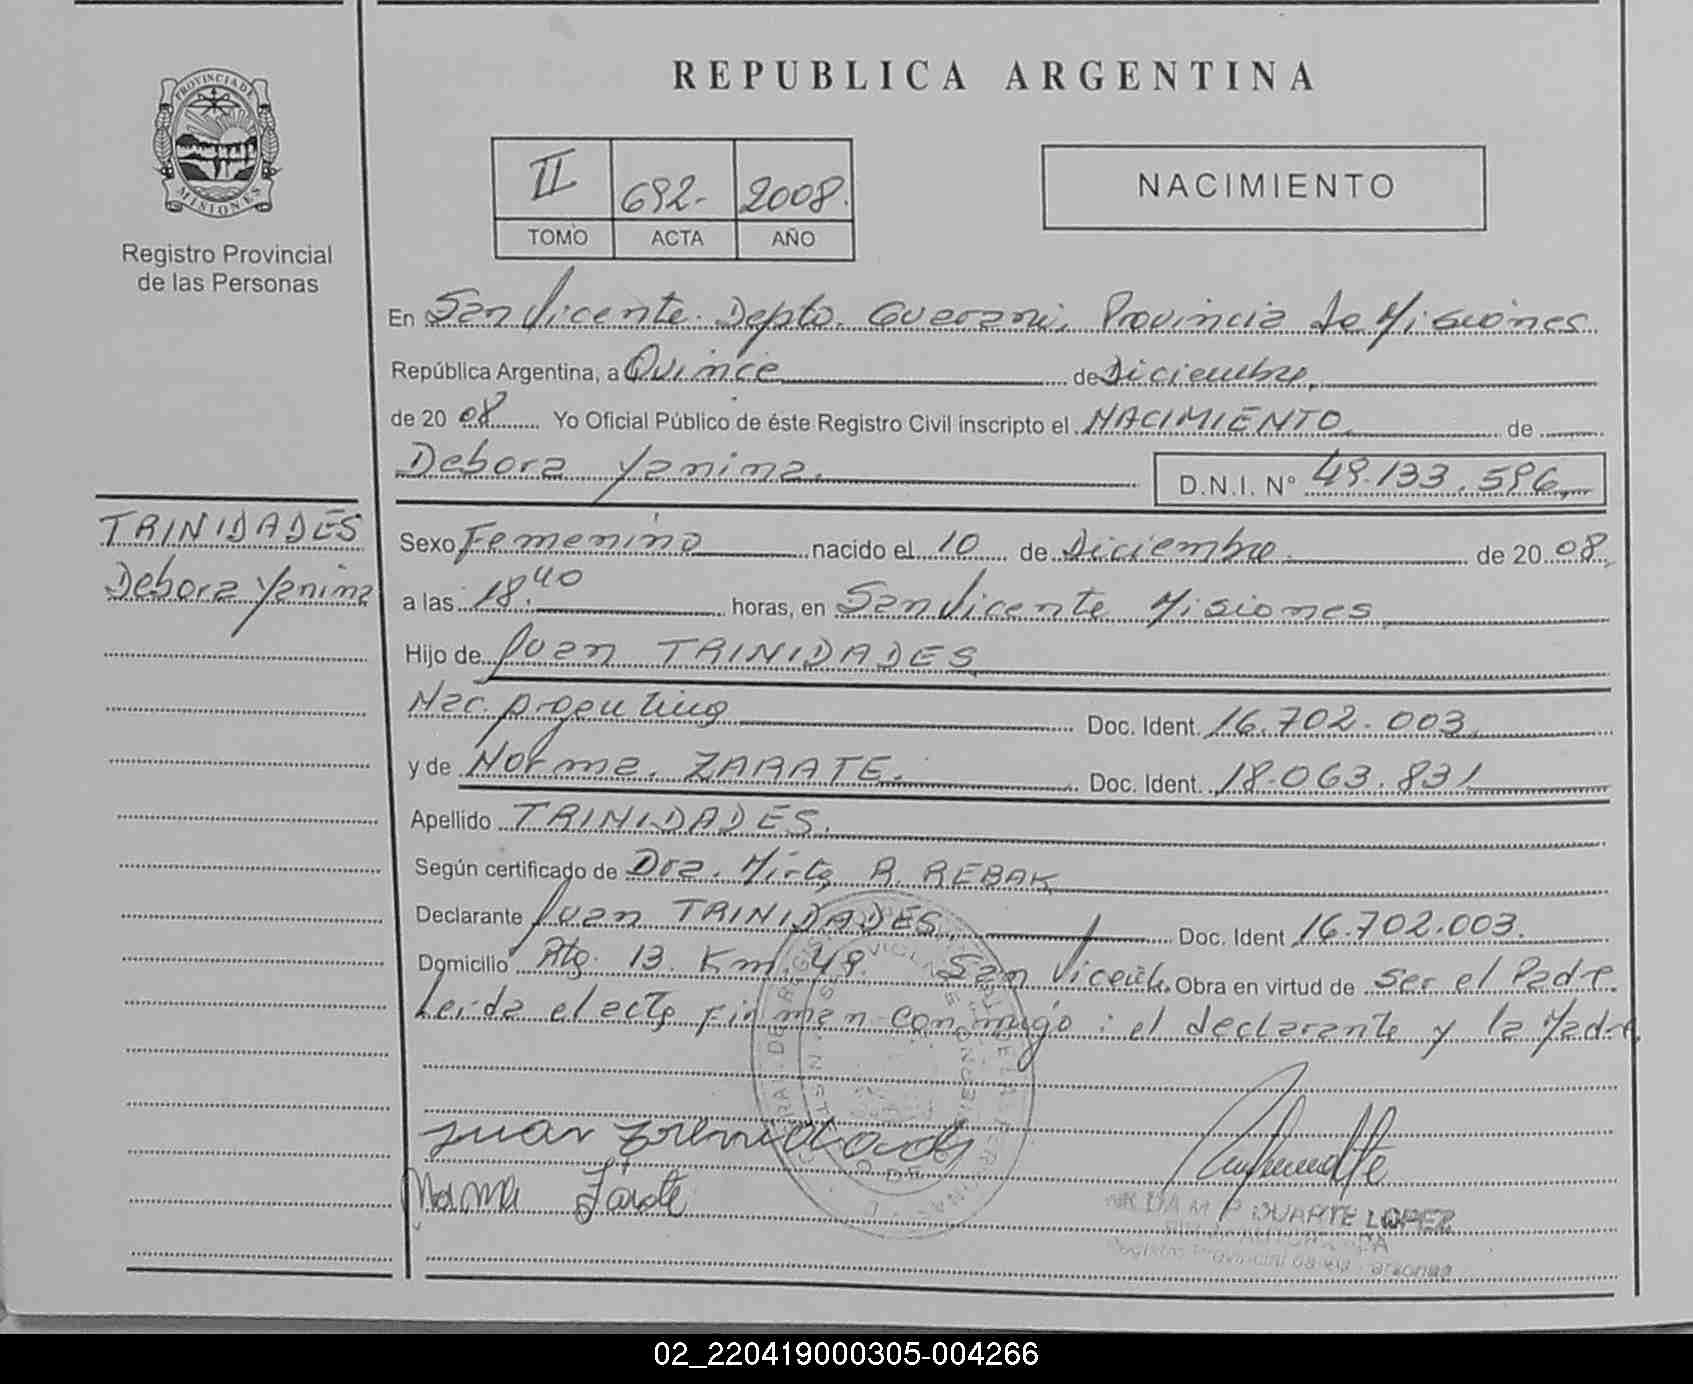 REPUBLICA ARGENTINA
PROVINCIA DE
MISIONES
Registro Provincial
de las Personas
II 692- 2008.
TOMO ACTA AÑO
NACIMIENTO
En San Vicente. Depto. Guarani, Provincia de Misiones
República Argentina, a Quince de Diciembre,
de 20 08 Yo Oficial Público de éste Registro Civil inscripto el NACIMIENTO de
Debora Yanina. D.N.I. Nº 49.133.596
TRINIDADES
Debora Yanina
Sexo Femenino nacido el 10 de Diciembre de 20 08,
a las 18.40 horas, en San Vicente Misiones
Hijo de Juan TRINIDADES
Nac. Argentino Doc. Ident. 16.702.003.
y de Norma. ZARATE. Doc. Ident. 18.063.831
Apellido TRINIDADES.
Según certificado de Dra. Mirta R. REBAK
Declarante Juan TRINIDADES, Doc. Ident 16.702.003.
Domicilio Rta. 13. Km. 49. San Vicente. Obra en virtud de ser el Padre.
Leida el acta firman conmigo: el declarante y la Madre.
Norma Zarate
DUARTE LOPEZ
02_220419000305-004266